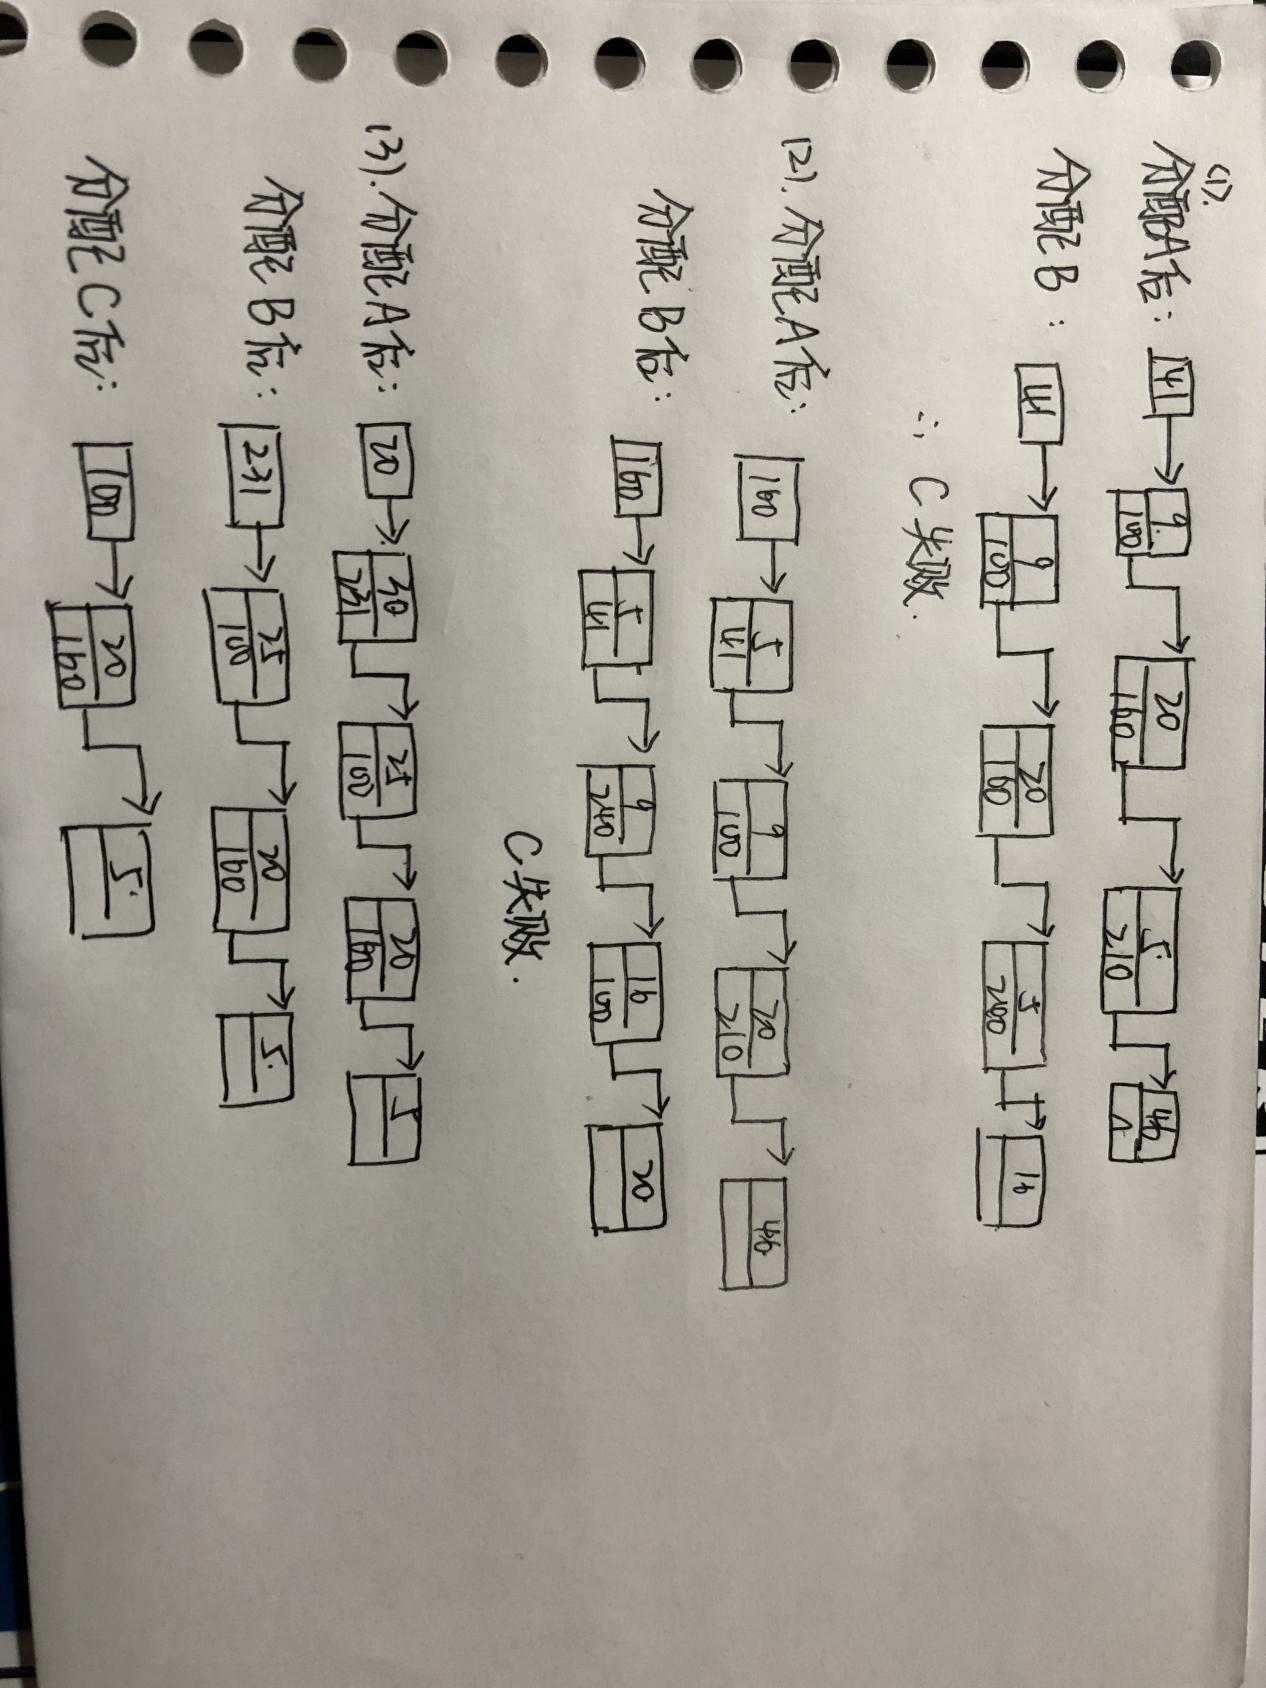 (1).
分配A后: 41 9 100 20 160 5 210 46 ^
分配B: 41 9 100 20 160 5 240 16
∴ C失败.
(2). 分配A后: 160 5 41 9 100 20 210 46
分配B后: 160 5 41 9 240 16 100 20
C失败.
(3). 分配A后: 20 30 231 25 100 20 160 5
分配B后: 231 25 100 20 160 5
分配C后: 100 20 160 5